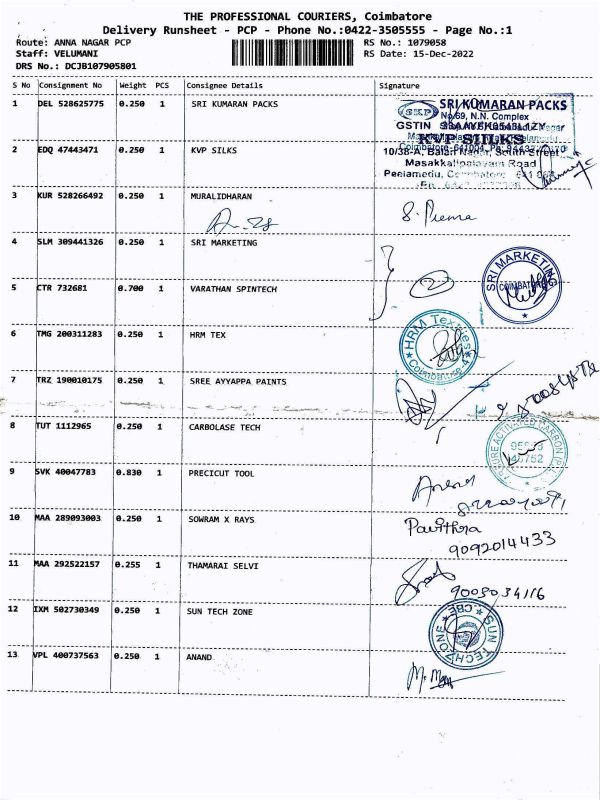 THE PROFESSIONAL COURIERS, Coimbatore
Delivery Runsheet - PCP - Phone No.:0422-3505555 - Page No.:1
Route: ANNA NAGAR PCP RS No.: 1079058
Staff: VELUMANI RS Date: 15-Dec-2022
DRS No.: DCJB107905801
S No Consignment No Weight PCS Consignee Details Signature
1 DEL 528625775 0.250 1 SRI KUMARAN PACKS
SKP SRI KUMARAN PACKS
No.69, N.N. Complex
GSTIN
2 EDQ 47443471 0.250 1 KVP SILKS
KVP SILKS
10/38-A, Balan Nagar, South Street
Masakkalipalayam Road
Peelamedu, Coimbatore
3 KUR 528266492 0.250 1 MURALIDHARAN
S. Prema
4 SLM 309441326 0.250 1 SRI MARKETING
SRI MARKETING
COIMBATORE
5 CTR 732681 0.700 1 VARATHAN SPINTECH
2
6 TMG 200311283 0.250 1 HRM TEX
HRM Textiles
Coimbatore-4
7 TRZ 190010175 0.250 1 SREE AYYAPPA PAINTS
8 TUT 1112965 0.250 1 CARBOLASE TECH
9 SVK 40047783 0.830 1 PRECICUT TOOL
10 MAA 289093003 0.250 1 SOWRAM X RAYS
Pavithra
9092014433
11 MAA 292522157 0.255 1 THAMARAI SELVI
12 IXM 502730349 0.250 1 SUN TECH ZONE
SUN TECH ZONE
CBE
13 VPL 400737563 0.250 1 ANAND